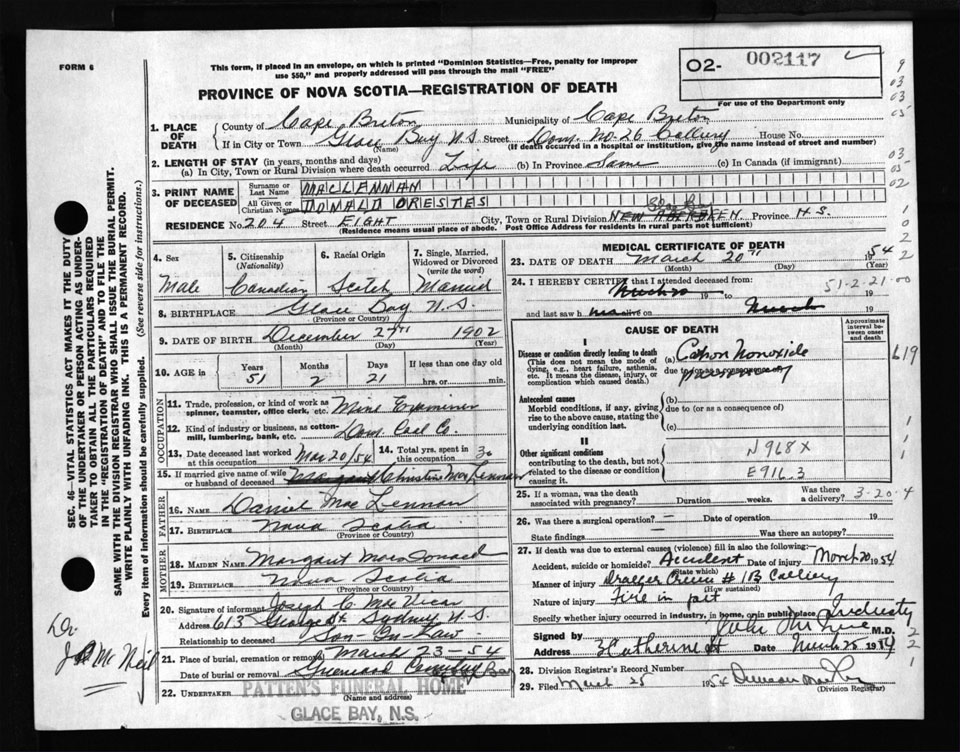 FORM 6
This form, if placed in an envelope, on which is printed "Dominion Statistics—Free, penalty for improper
use $50," and properly addressed will pass through the mail "FREE"
PROVINCE OF NOVA SCOTIA—REGISTRATION OF DEATH
02- 002117
For use of the Department only
1. PLACE OF DEATH
County of Cape Breton Municipality of Cape Breton
If in City or Town Glace Bay N.S. Street Dom. No-26 Colliery House No.
(Name) (If death occurred in a hospital or institution, give the name instead of street and number)
2. LENGTH OF STAY (in years, months and days)
(a) In City, Town or Rural Division where death occurred Life (b) In Province Same (c) In Canada (if immigrant)
3. PRINT NAME OF DECEASED
Surname or Last Name MACLENNAN
All Given or Christian Names DONALD ORESTES
RESIDENCE No. 204 Street EIGHT City, Town or Rural Division NEW ABERDEEN Glace Bay Province N.S.
(Residence means usual place of abode. Post Office Address for residents in rural parts not sufficient)
4. Sex Male
5. Citizenship (Nationality) Canadian
6. Racial Origin Scotch
7. Single, Married, Widowed or Divorced (write the word) Married
8. BIRTHPLACE Glace Bay N.S.
(Province or Country)
9. DATE OF BIRTH December 27th 1902
(Month) (Day) (Year)
10. AGE in Years 51 Months 2 Days 21 If less than one day
hrs. or min.
OCCUPATION
11. Trade, profession, or kind of work as spinner, teamster, office clerk, etc. Mine Examiner
12. Kind of industry or business, as cotton-mill, lumbering, bank, etc. Dom. Coal Co.
13. Date deceased last worked at this occupation Mar 20/54
14. Total yrs. spent in this occupation 30
15. If married give name of wife or husband of deceased Margaret Christine MacLennan
FATHER
16. Name Daniel MacLennan
17. Birthplace Nova Scotia
(Province or Country)
MOTHER
18. Maiden Name Margaret MacDonald
19. Birthplace Nova Scotia
(Province or Country)
20. Signature of informant Joseph C. MacVicar
Address 613 George St Sydney N.S.
Relationship to deceased Son-In-Law
21. Place of burial, cremation or removal
Date of burial or removal March 23-54
Greenwood Cemetery Glace Bay
22. UNDERTAKER PATTEN'S FUNERAL HOME
(Name and address)
GLACE BAY, N.S.
MEDICAL CERTIFICATE OF DEATH
23. DATE OF DEATH March 20th 1954
(Month) (Day) (Year)
24. I HEREBY CERTIFY that I attended deceased from:
19 to
and last saw h alive on
51-2-21-00
CAUSE OF DEATH
Approximate interval between onset and death
I
Disease or condition directly leading to death (a) Carbon Monoxide
(This does not mean the mode of dying, e.g., heart failure, asthenia, etc. It means the disease, injury, or complication which caused death.
due to (or as a consequence of)
poisoning
Antecedent causes
Morbid conditions, if any, giving rise to the above cause, stating the underlying condition last.
(b)
due to (or as a consequence of)
(c)
II
Other significant conditions
contributing to the death, but not related to the disease or condition causing it.
N968X
E916.3
619
25. If a woman, was the death associated with pregnancy? Duration weeks. Was there a delivery?
3-20-4
26. Was there a surgical operation? — Date of operation 19
State findings Was there an autopsy?
27. If death was due to external causes (violence) fill in also the following:
Accident, suicide or homicide? Accident Date of injury March 20 1954
(State which)
Manner of injury Draeger Crew # 1B Colliery
(How sustained)
Nature of injury Fire in pit
Specify whether injury occurred in industry, in home, or in public place Industry
Signed by M.D.
Address 3 Catherine St Date March 25 1954
28. Division Registrar's Record Number
29. Filed March 25 1954
(Division Registrar)
SEC. 46—VITAL STATISTICS ACT MAKES IT THE DUTY
OF THE UNDERTAKER OR PERSON ACTING AS UNDER-
TAKER TO OBTAIN ALL THE PARTICULARS REQUIRED
IN THE "REGISTRATION OF DEATH" AND TO FILE THE
SAME WITH THE DIVISION REGISTRAR WHO SHALL ISSUE THE BURIAL PERMIT.
WRITE PLAINLY WITH UNFADING INK. THIS IS A PERMANENT RECORD.
Every item of information should be carefully supplied. (See reverse side for instructions.)
Dr.
McNeil
9
03
03
05
03
05
02
1
0
2
2
1
1
1
2
2
1